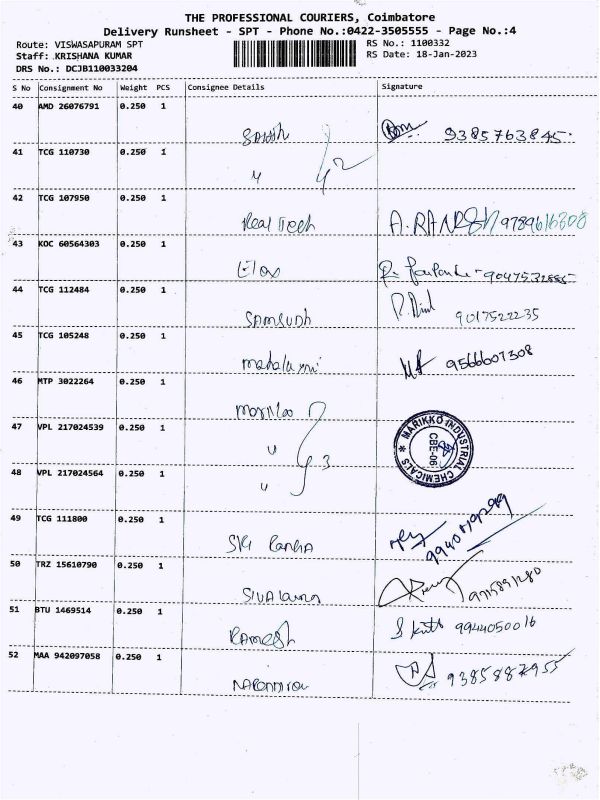 THE PROFESSIONAL COURIERS, Coimbatore
Delivery Runsheet - SPT - Phone No.:0422-3505555 - Page No.:4
Route: VISWASAPURAM SPT
RS No.: 1100332
Staff: KRISHANA KUMAR
RS Date: 18-Jan-2023
DRS No.: DCJB110033204
S No Consignment No Weight PCS Consignee Details Signature
40 AMD 26076791 0.250 1
9385763845
41 TCG 110730 0.250 1
42 TCG 107950 0.250 1
Real Tech 9789616308
43 KOC 60564303 0.250 1
44 TCG 112484 0.250 1
9017522235
45 TCG 105248 0.250 1
mahalaxmi 9566607308
46 MTP 3022264 0.250 1
47 VPL 217024539 0.250 1
MARIKKO INDUSTRIAL CHEMICALS
CBE-06
48 VPL 217024564 0.250 1
49 TCG 111800 0.250 1
50 TRZ 15610790 0.250 1
51 BTU 1469514 0.250 1
RAMESH 9944050016
52 MAA 942097058 0.250 1